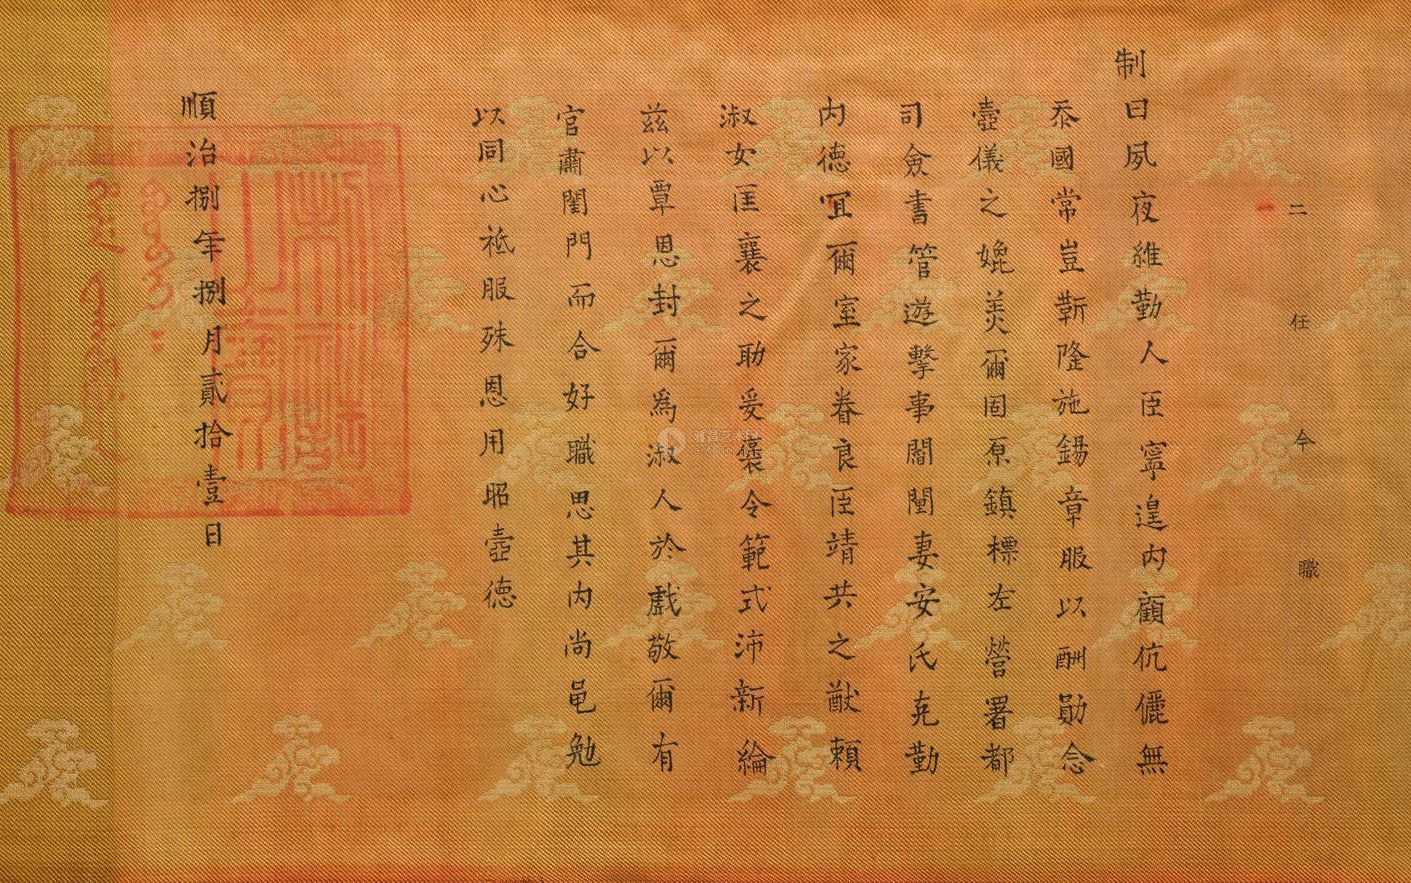 二任令職
制曰夙夜維勤人臣寧遑内顧伉儷無
忝國常豈靳隆施錫章服以酬勛念
壼儀之媲美爾固原鎮標左營署都
司僉書管遊擊事閻閏妻安氏克勤
内德宜爾室家眷良臣靖共之猷賴
淑女匡襄之助爰褒令範式沛新綸
兹以覃恩封爾為淑人於戲敬爾有
官肅閨門而合好職思其内尚黽勉
以同心祗服殊恩用昭壼德
順治捌年捌月貳拾壹日
制誥之寳